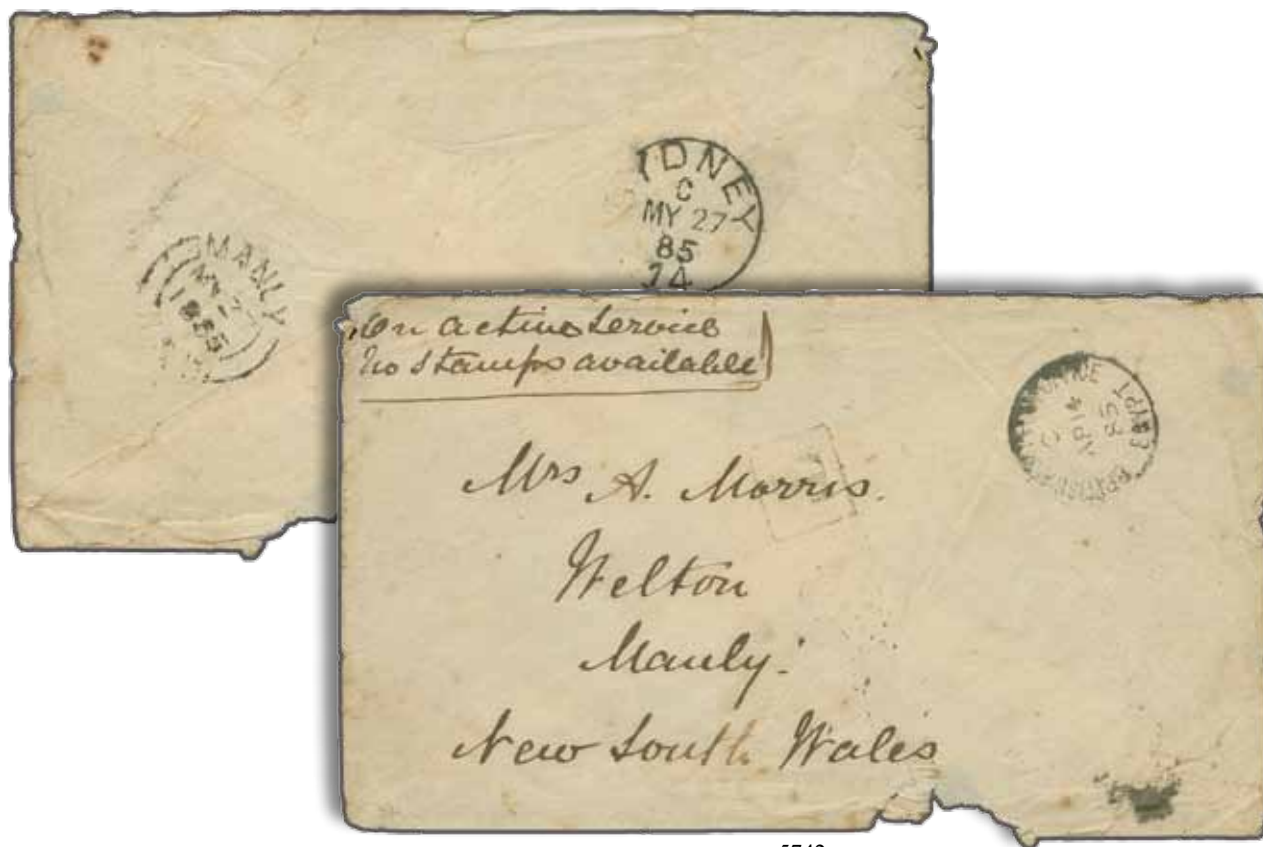 SYDNEY
C
MY 27
85
14
MANLY
1885
On active Service
No stamps available
BRITISH
EGYPT
AP 14
85
Mrs A. Morris.
Welton
Manly.
New South Wales
5740